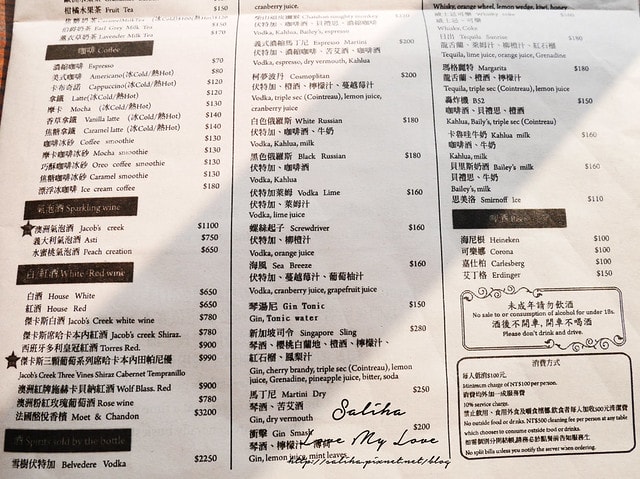 柑橘水果茶 Fruit Tea $150
伯爵奶茶 Earl Grey Milk Tea $150
薰衣草奶茶 Lavender Milk Tea $150
咖啡 Coffee
濃縮咖啡 Espresso $70
美式咖啡 Americano(冰Cold/熱Hot) $80
卡布奇諾 Cappuccino(冰Cold/熱Hot) $120
拿鐵 Latte(冰Cold/熱Hot) $120
摩卡 Mocha (冰Cold/熱Hot) $130
香草拿鐵 Vanilla latte (冰Cold/熱Hot) $140
焦糖拿鐵 Caramel latte (冰Cold/熱Hot) $140
咖啡冰沙 Coffee smoothie $130
摩卡咖啡冰沙 Mocha smoothie $130
巧酥咖啡冰沙 Oreo coffee smoothie $130
焦糖咖啡冰沙 Caramel smoothie $130
漂浮冰咖啡 Ice cream coffee $180
氣泡酒 Sparkling wine
澳洲氣泡酒 Jacob's creek $1100
義大利氣泡酒 Asti $750
水蜜桃氣泡酒 Peach creation $650
白.紅酒 White·Red wine
白酒 House White $650
紅酒 House Red $650
傑卡斯白酒 Jacob's Creek white wine $780
傑卡斯席哈卡本內紅酒 Jacob's creek Shiraz. $780
西班牙多利皇冠紅酒 Torres Red. $990
傑卡斯三顆葡萄系列席哈卡本內田帕尼優 $990
Jacob's Creek Three Vines Shiraz Cabernet Tempranillo
澳洲紅牌施赫卡貝納紅酒 Wolf Blass. Red $900
澳洲粉紅玫瑰葡萄酒 Rose wine $780
法國酩悅香檳 Moet & Chandon $3200
酒 Spirits sold by the bottle
雪樹伏特加 Belvedere Vodka $2250
cranberry juice.
伏特加、咖啡酒、貝禮思、咖啡 $200
Vodka, Kahlua, Baily's, espresso
義式濃縮馬丁尼 Espresso Martini $200
伏特加、濃縮咖啡、苦艾酒、咖啡酒
Vodka, espresso, dry vermouth, Kahlua
柯夢波丹 Cosmoplitan $200
伏特加、橙酒、檸檬汁、蔓越莓汁
Vodka, triple sec (Cointreau), lemon juice,
cranberry juice
白色俄羅斯 White Russian $180
伏特加、咖啡酒、牛奶
Vodka, Kahlua, milk
黑色俄羅斯 Black Russian $180
伏特加、咖啡酒
Vodka, Kahlua
伏特加萊姆 Vodka Lime $160
伏特加、萊姆汁
Vodka, lime juice
螺絲起子 Screwdriver $160
伏特加、柳橙汁
Vodka, orange juice
海風 Sea Breeze $160
伏特加、蔓越莓汁、葡萄柚汁
Vodka, cranberry juice, grapefruit juice
琴湯尼 Gin Tonic $150
Gin, Tonic water
新加坡司令 Singapore Sling $280
琴酒、櫻桃白蘭地、橙酒、檸檬汁、
紅石榴、鳳梨汁
Gin, cherry brandy, triple sec(Cointreau), lemon
juice, Grenadine, pineapple juice, bitter, soda
馬丁尼 Martini Dry $250
琴酒、苦艾酒
Gin, dry vermouth
衝擊 Gin Smash $200
琴酒、檸檬汁、薄荷
Gin, lemon juice, mint leaves
Whisky, orange wheel, lemon wedge, kiwi, honey
Whisky, Coke
日出 Tequila Sunrise $180
龍舌蘭、萊姆汁、柳橙汁、紅石榴
Tequila, lime juice, orange juice, Grenadine
瑪格麗特 Margarita $180
龍舌蘭、橙酒、檸檬汁
Tequila, triple sec (Cointreau), lemon juice
轟炸機 B52 $150
咖啡酒、貝禮思、橙酒
Kahlua, Baily's, triple sec (Cointreau)
卡魯哇牛奶 Kahlua milk $160
咖啡酒、牛奶
Kahlua, milk
貝里斯奶酒 Bailey's milk $160
貝里思、牛奶
Bailey's, milk
思美洛 Smirnoff Ice $110
啤酒 Beer
海尼根 Heineken $100
可樂娜 Corona $100
嘉仕柏 Carlesberg $100
艾丁格 Erdinger $150
未成年請勿飲酒
No sale to or consumption of alcohol for under 18s.
酒後不開車, 開車不喝酒
Please don't drink and drive.
消費方式
每人低消$100元.
Minimum charge of NT$100 per person.
消費均外加一成服務費
10% service charge.
禁止飲用、食用外食及蛋糕標籤, 飲食者每人加收500元清潔費
No outside food or drinks. NT$500 cleaning fee per person at any table
which chooses to consume outside food or drinks.
如需個別分開結帳, 請務必於點餐前告知服務生.
No split bills unless you notify the server when ordering.
Saliha
Love My Love
http://saliha.pixnet.net/blog